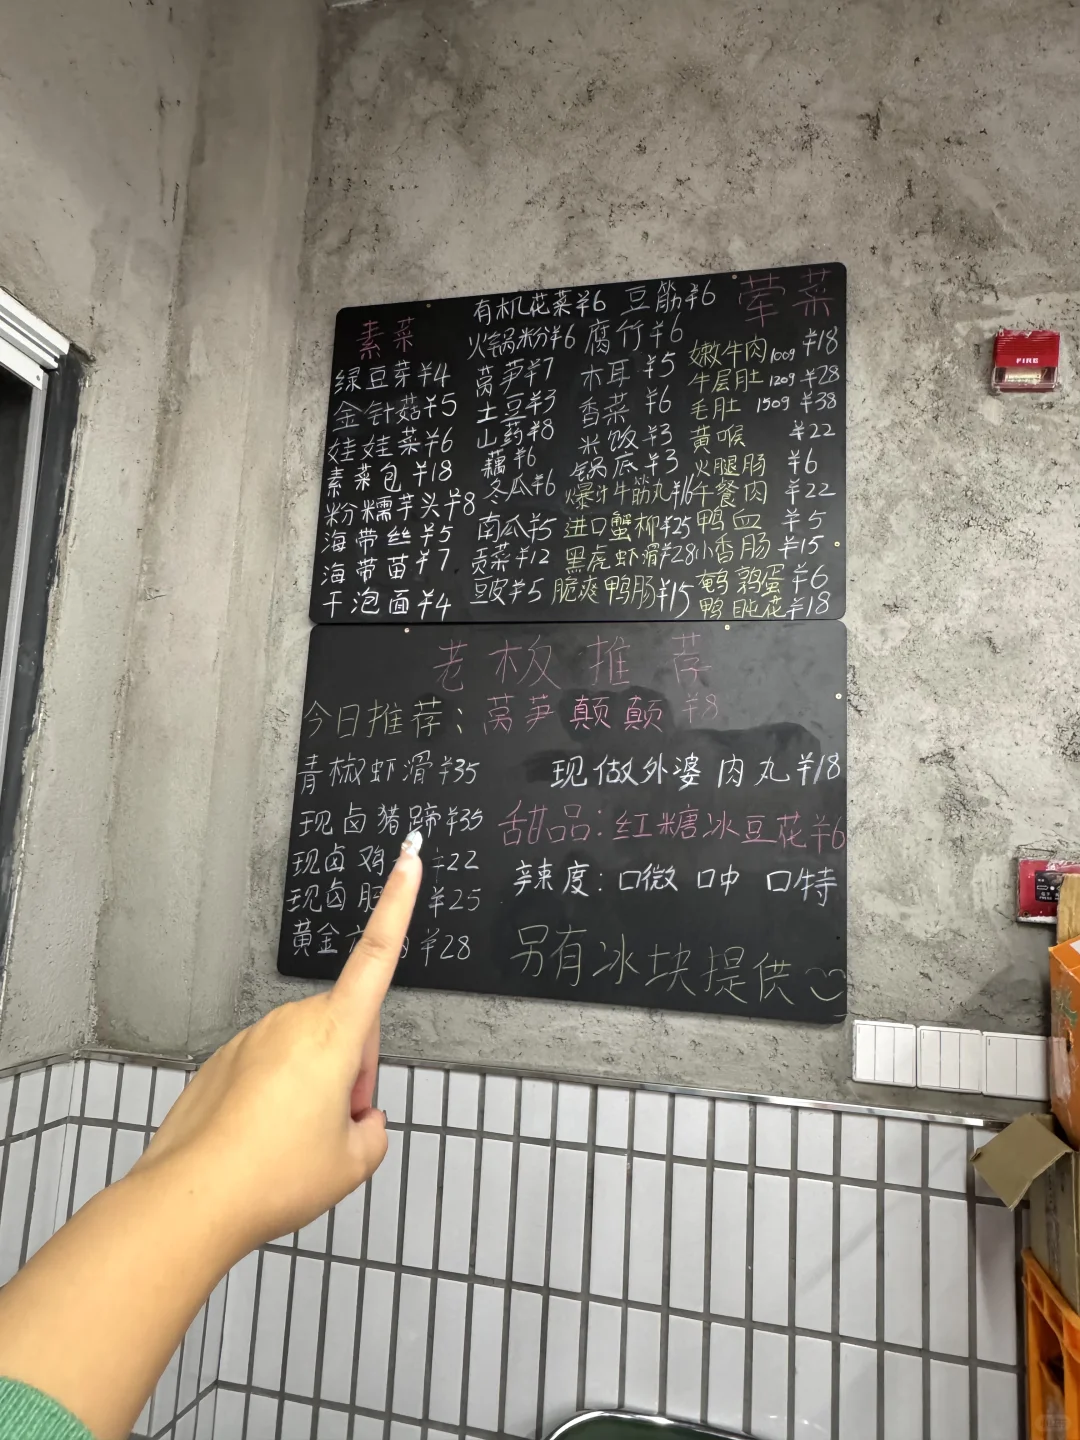 素菜
绿豆芽¥4
金针菇¥5
娃娃菜¥6
素菜包¥18
粉糯芋头¥8
海带丝¥5
海带苗¥7
干泡面¥4
有机花菜¥6
火锅粉¥6
莴笋¥7
土豆¥3
山药¥8
藕¥6
冬瓜¥6
南瓜¥5
贡菜¥12
豆皮¥5
豆筋¥6
腐竹¥6
木耳¥5
香菜¥6
米饭¥3
锅底¥3
爆汁牛筋丸¥16
进口蟹柳¥25
黑虎虾滑¥28
脆爽鸭肠¥15
荤菜
嫩牛肉100g ¥18
牛层肚120g ¥28
毛肚150g ¥38
黄喉¥22
火腿肠¥6
午餐肉¥22
鸭血¥5
小香肠¥15
鹌鹑蛋¥6
鸭肫花¥18
老板推荐
今日推荐：莴笋颠颠¥8
青椒虾滑¥35
现卤猪蹄¥35
现卤鸡 ¥22
现卤 ¥25
黄金 ¥28
现做外婆肉丸¥18
甜品：红糖冰豆花¥6
辣度：口微 口中 口特
另有冰块提供
FIRE